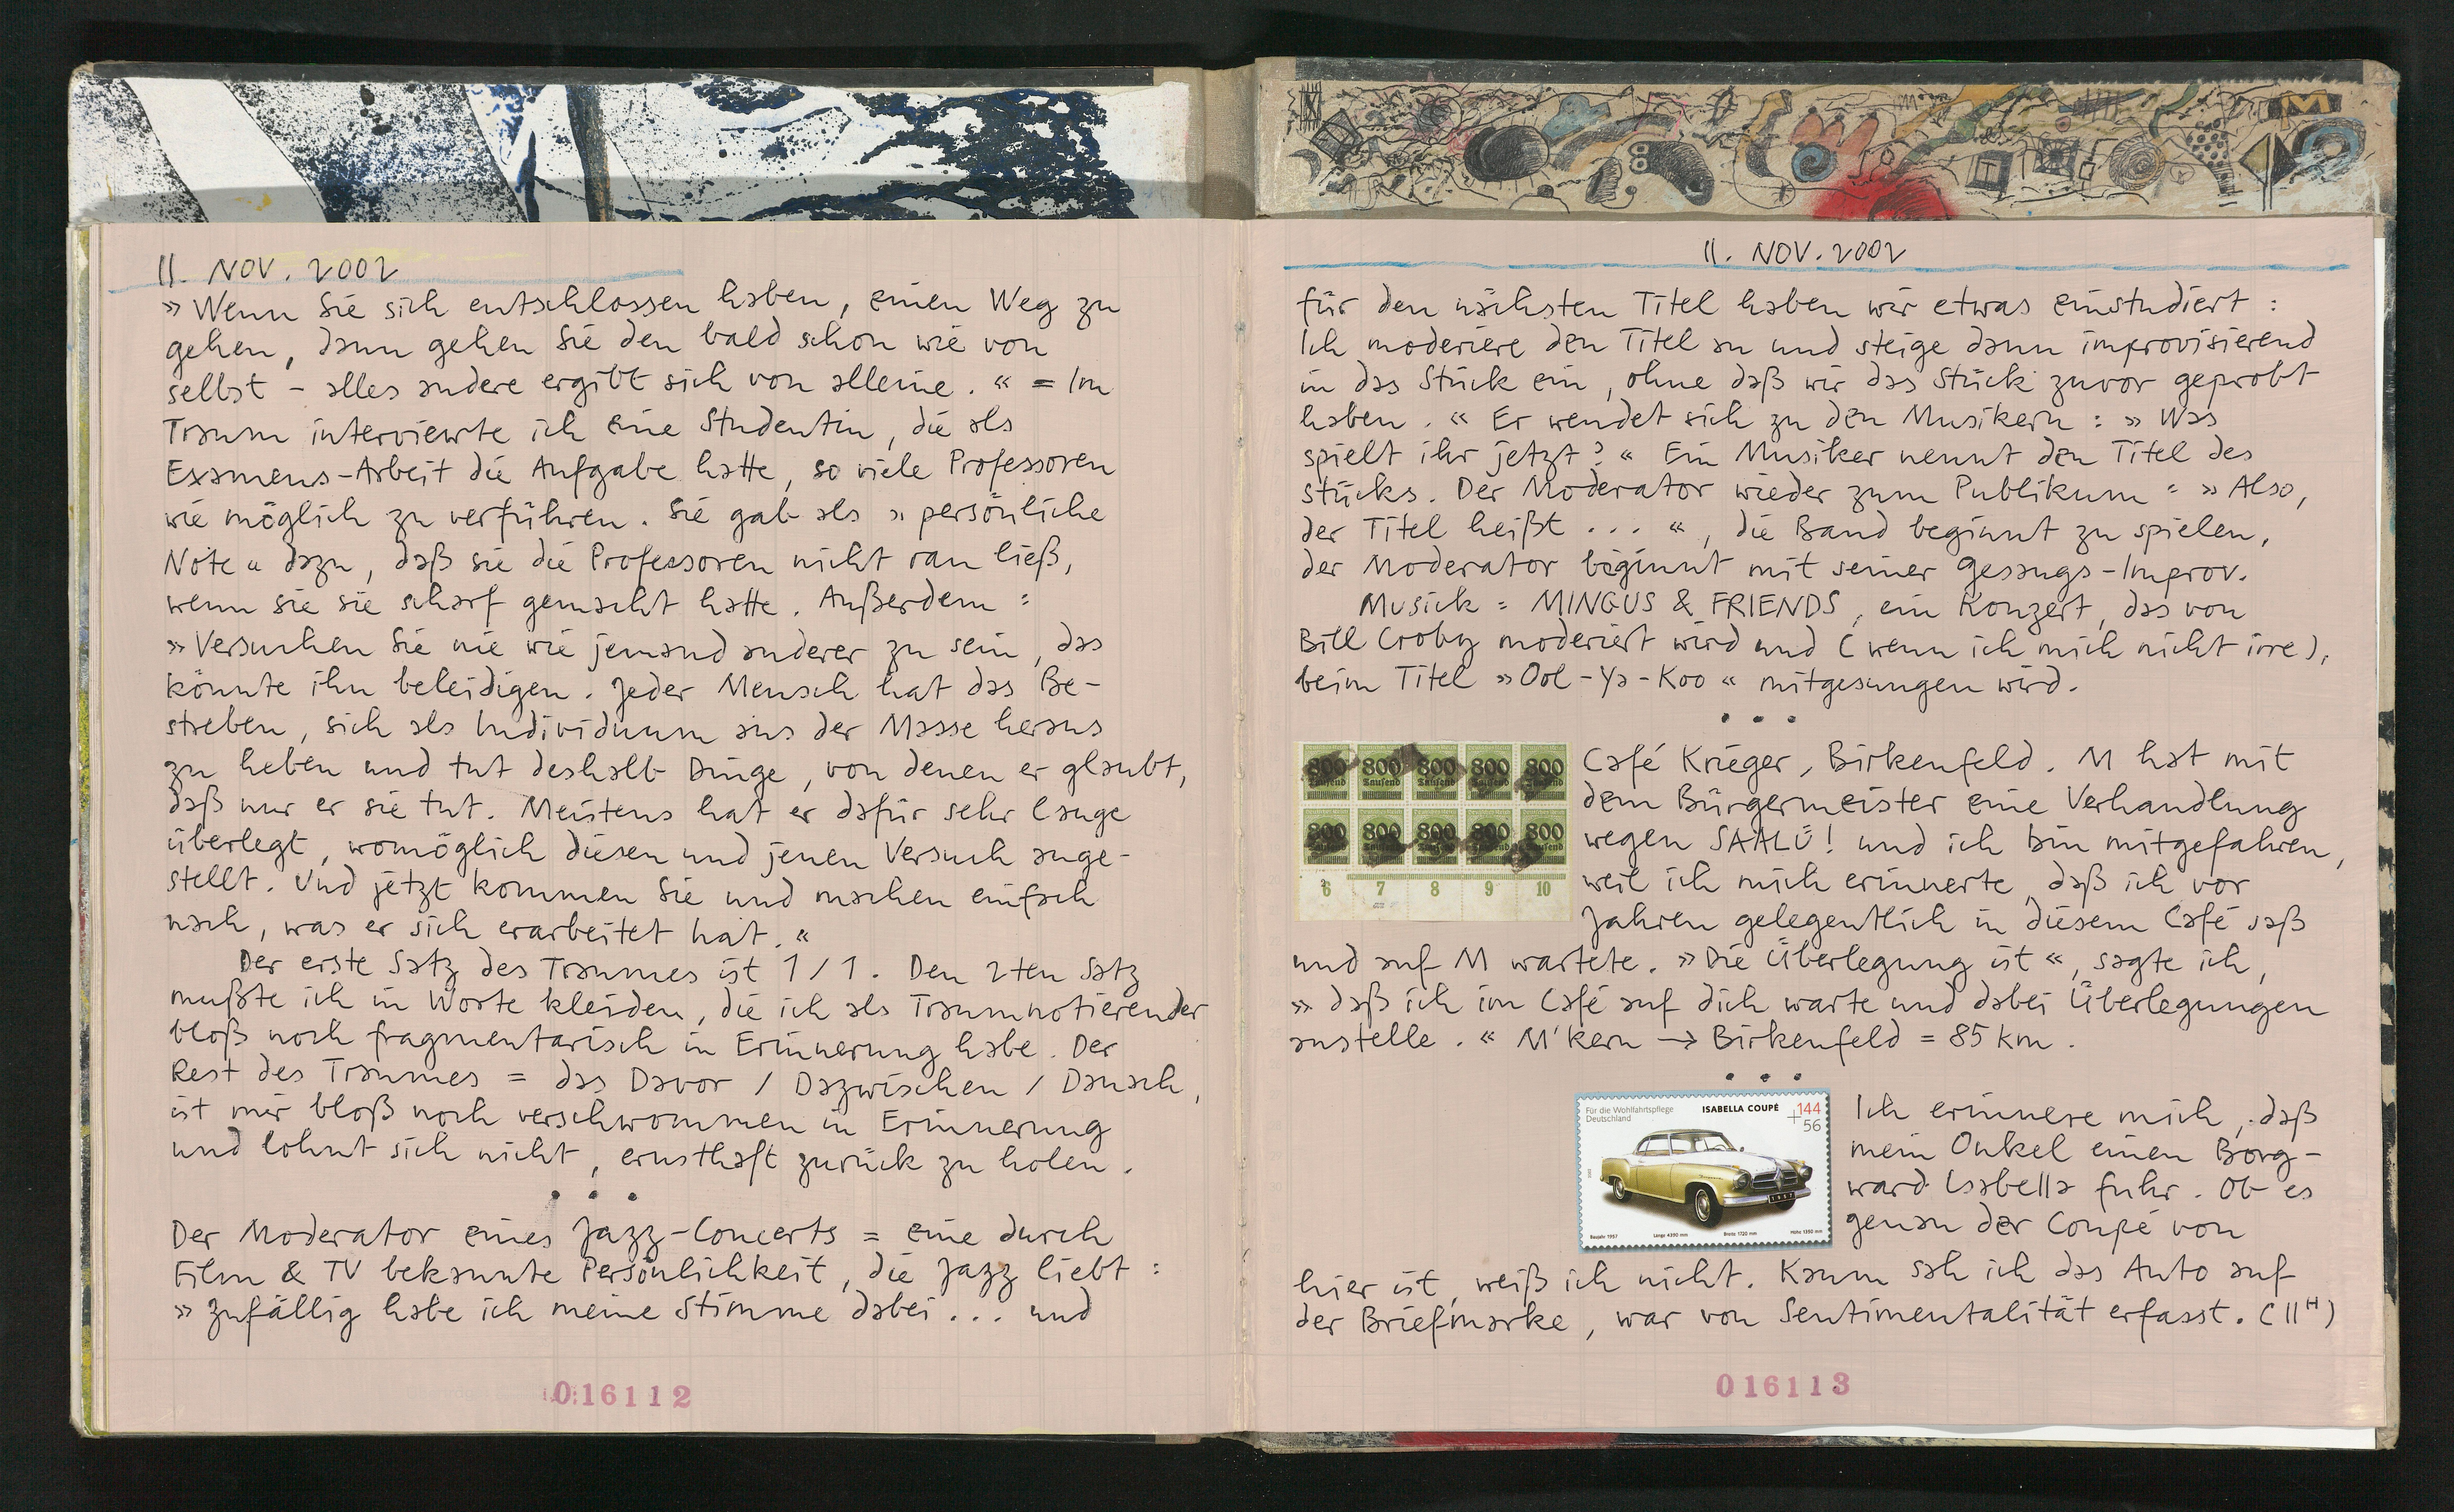 11. NOV. 2002
»Wenn Sie sich entschlossen haben, einen Weg zu
gehen, dann gehen Sie den bald schon wie von
selbst – alles andere ergibt sich von alleine.« = Im
Traum interviewte ich eine Studentin, die als
Examens-Arbeit die Aufgabe hatte, so viele Professoren
wie möglich zu verführen. Sie gab als »persönliche
Note« dazu, daß sie die Professoren nicht ran ließ,
wenn sie sie scharf gemacht hatte. Außerdem:
»Versuchen Sie nie wie jemand anderer zu sein, das
könnte ihn beleidigen. Jeder Mensch hat das Be-
streben, sich als Individuum aus der Masse heraus
zu heben und tut deshalb Dinge, von denen er glaubt,
daß nur er sie tut. Meistens hat er dafür sehr lange
überlegt, womöglich diesen und jenen Versuch ange-
stellt. Und jetzt kommen Sie und machen einfach
nach, was er sich erarbeitet hat.«
Der erste Satz des Traumes ist 1/1. Den 2ten Satz
mußte ich in Worte kleiden, die ich als Traumnotierender
bloß noch fragmentarisch in Erinnerung habe. Der
Rest des Traumes = das Davor / Dazwischen / Danach,
ist mir bloß noch verschwommen in Erinnerung
und lohnt sich nicht, ernsthaft zurück zu holen.
• • •
Der Moderator eines Jazz-Concerts = eine durch
Film & TV bekannte Persönlichkeit, die Jazz liebt:
»Zufällig habe ich meine Stimme dabei... und
016112
11. NOV. 2002
für den nächsten Titel haben wir etwas einstudiert:
Ich moderiere den Titel an und steige dann improvisierend
in das Stück ein, ohne daß wir das Stück zuvor geprobt
haben.« Er wendet sich zu den Musikern: »Was
spielt ihr jetzt?« Ein Musiker nennt den Titel des
Stücks. Der Moderator wieder zum Publikum: »Also,
der Titel heißt ...«, die Band beginnt zu spielen,
der Moderator beginnt mit seiner Gesangs-Improv.
Musick = MINGUS & FRIENDS, ein Konzert, das von
Bill Croby moderiert wird und (wenn ich mich nicht irre),
beim Titel »Ool-Ya-Koo« mitgesungen wird.
• • •
800 800 800 800 800
Tausend Tausend Tausend Tausend Tausend
800 800 800 800 800
Tausend Tausend Tausend Tausend Tausend
6 7 8 9 10
Café Krieger, Birkenfeld. M hat mit
dem Bürgermeister eine Verhandlung
wegen SAALÜ! und ich bin mitgefahren,
weil ich mich erinnerte, daß ich vor
Jahren gelegentlich in diesem Café saß
und auf M wartete. »Die Überlegung ist«, sagte ich,
»daß ich im Café auf dich warte und dabei Überlegungen
anstelle.« M'kern → Birkenfeld = 85 km.
• • •
Für die Wohlfahrtspflege
Deutschland
ISABELLA COUPÉ
144
+56
Baujahr 1957 Länge 4390 mm Breite 1720 mm Höhe 1350 mm
Ich erinnere mich, daß
mein Onkel einen Borg-
ward Isabella fuhr. Ob es
genau der Coupé von
hier ist, weiß ich nicht. Kaum sah ich das Auto auf
der Briefmarke, war von Sentimentalität erfasst. (11H)
016113